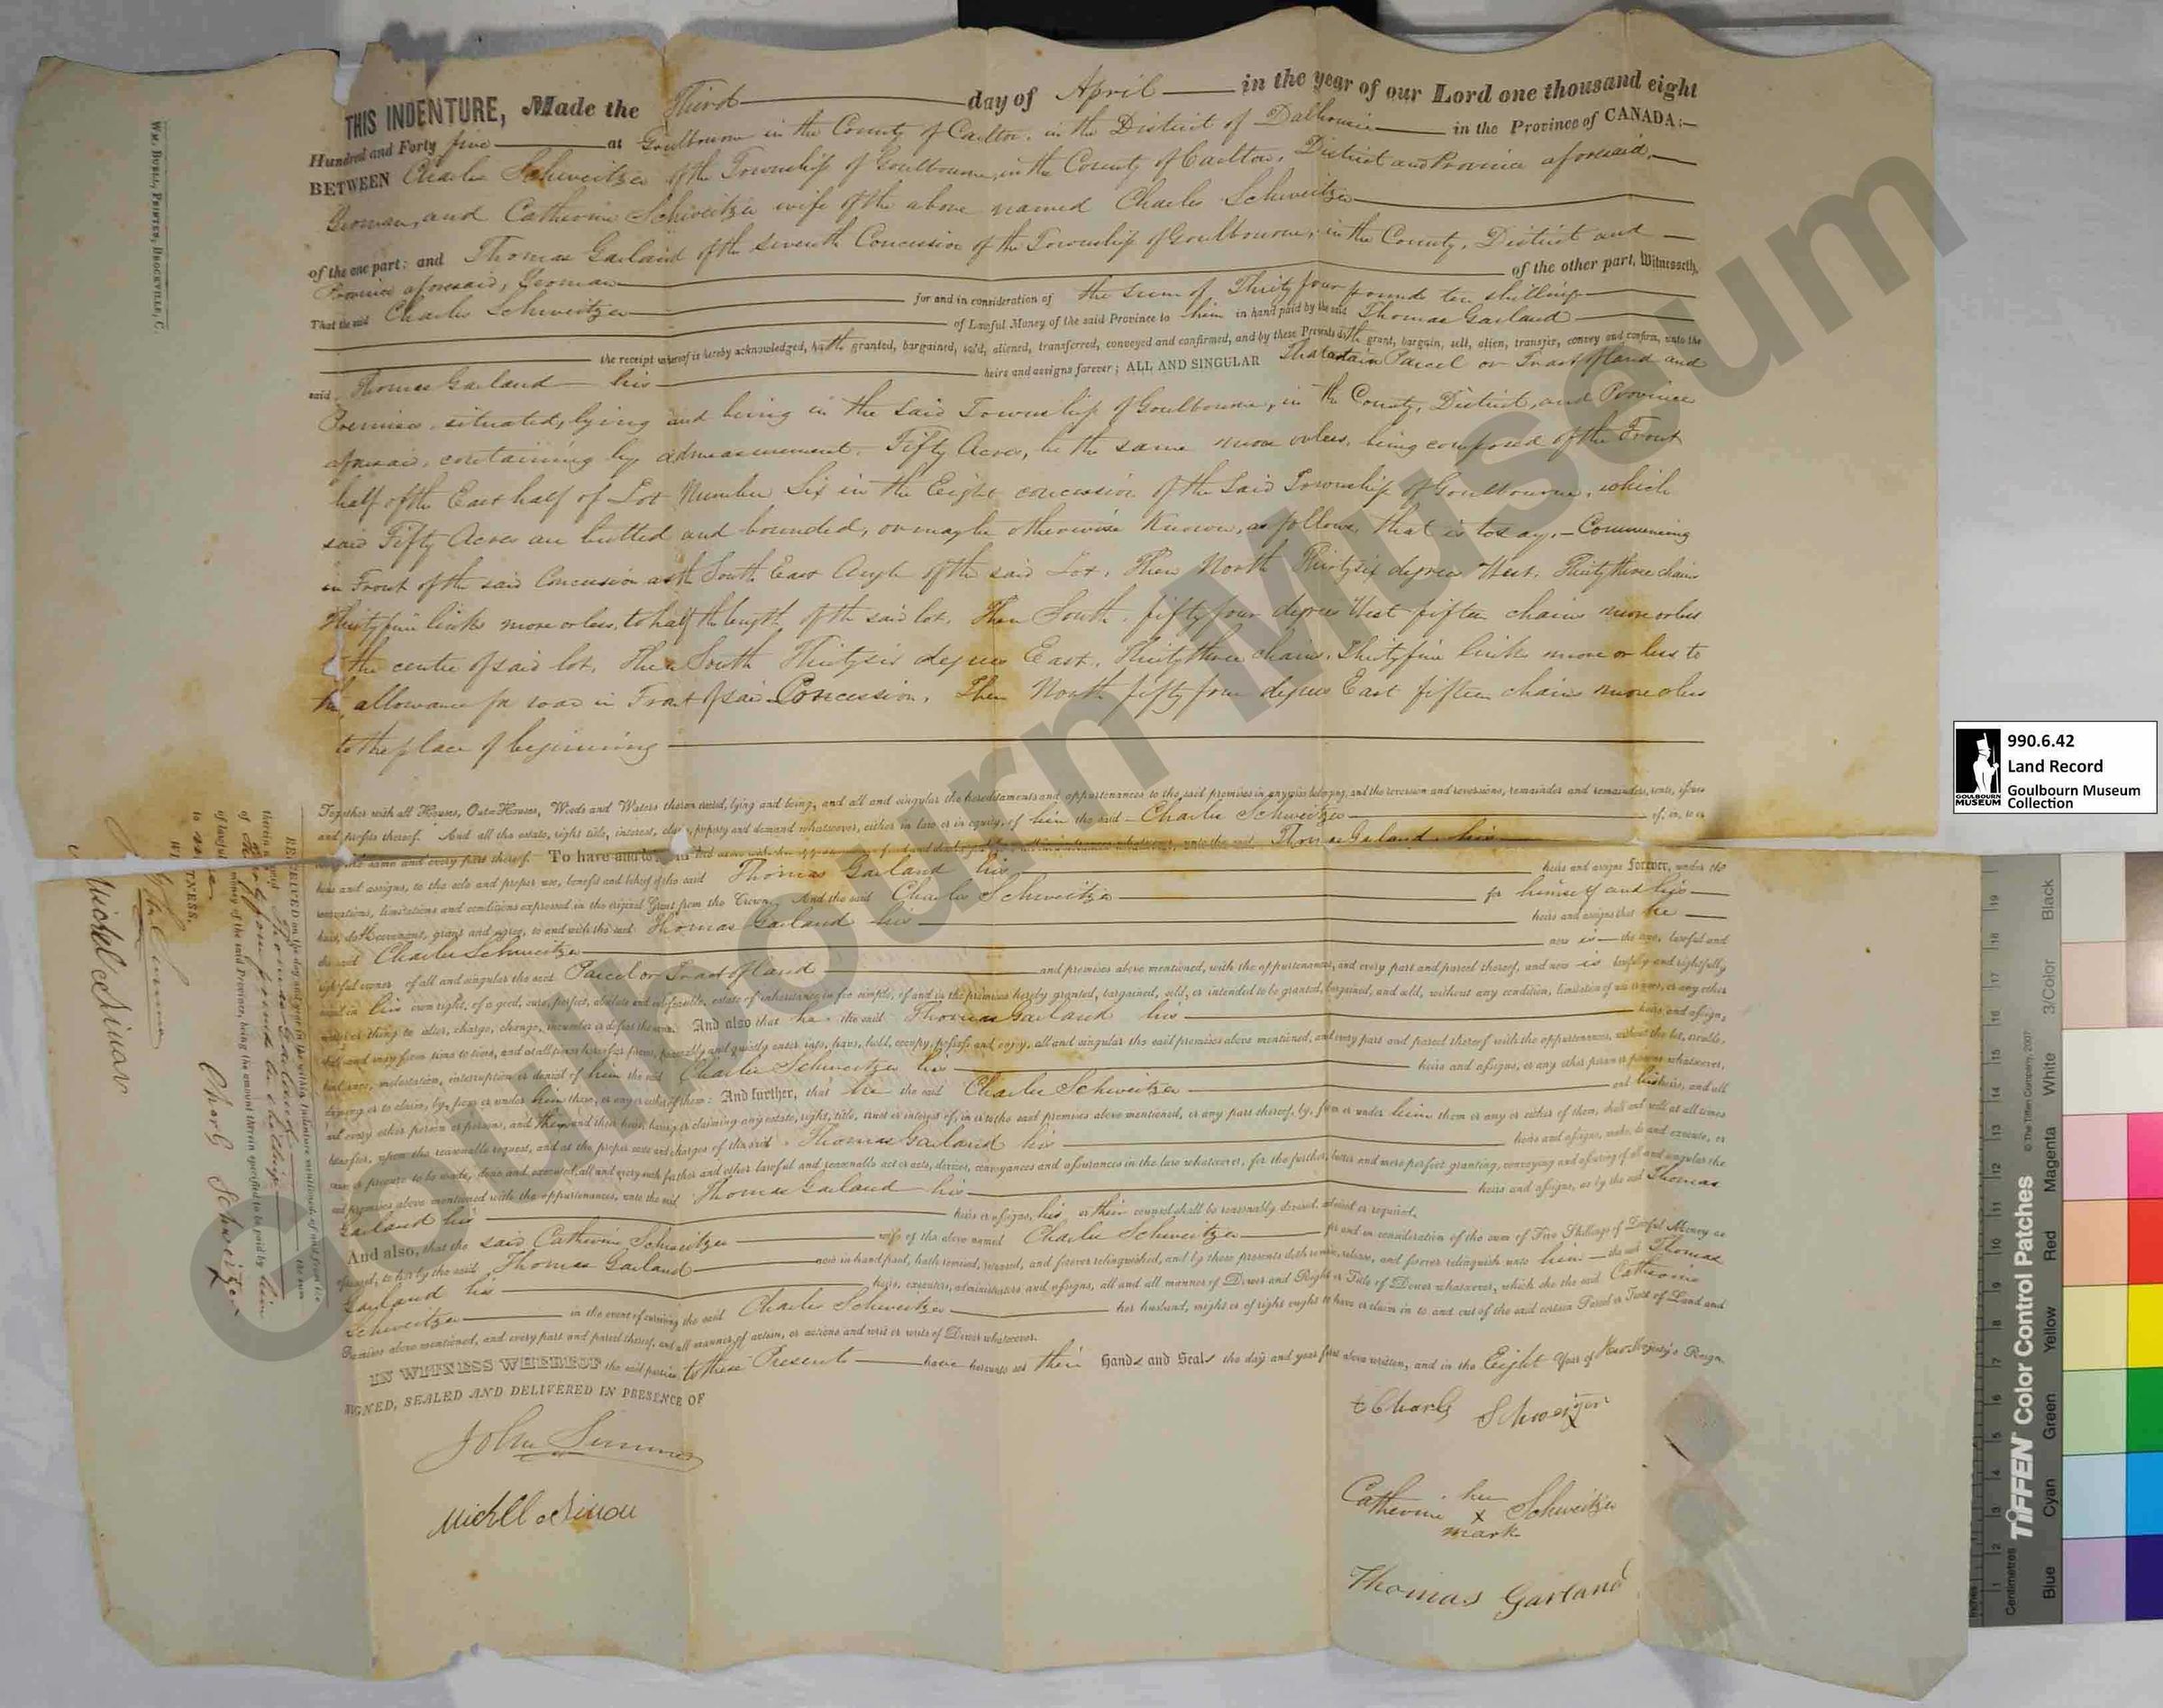 THIS INDENTURE, Made the Third day of April in the year of our Lord one thousand eight
Hundred and Forty five at Goulbourn in the County of Carlton, in the District of Dalhousie in the Province of CANADA:—
BETWEEN Charles Schweitzer of the Township of Goulbourne, in the County of Carlton, District and Province aforesaid,
Yeoman, and Catherine Schweitzer wife of the above named Charles Schweitzer
of the one part: and Thomas Garland of the seventh Concession of the Township of Goulbourne, in the County, District and
Province aforesaid, Yeoman of the other part, Witnesseth,
That the said Charles Schweitzer for and in consideration of the sum of Thirty four pounds ten shillings
of Lawful Money of the said Province to him in hand paid by the said Thomas Garland
the receipt whereof is hereby acknowledged, hath granted, bargained, sold, aliened, transferred, conveyed and confirmed, and by these Presents doth grant, bargain, sell, alien, transfer, convey and confirm, unto the
said Thomas Garland his heirs and assigns forever; ALL AND SINGULAR That certain Parcel or Tract of land and
Premises situated, lying and being in the said Township of Goulbourne, in the County, District, and Province
aforesaid, containing by admeasurement, Fifty Acres, be the same more or less, being composed of the Front
half of the East half of Lot Number Six in the Eight concession of the Said Township of Goulbourne, which
said Fifty Acres are butted and bounded, or may be otherwise Known, as follows, that is to say,— Commencing
in Front of the said Concession at the South East Angle of the said Lot, Then North Thirty six degrees West, Thirty three chains
Thirty five links more or less, to half the length of the said lot, Then South, fifty four degrees West fifteen chains more or less
to the centre of said lot, Then South Thirty six degrees East, Thirty three chains, Thirty five links more or less to
the allowance for road in Front of said Concession, Then North fifty four degrees East fifteen chains more or less
to the place of beginning
Together with all Houses, Out-Houses, Woods and Waters thereon erected, lying and being, and all and singular the hereditaments and appurtenances to the said premises in anywise belonging, and the reversion and reversions, remainder and remainders, rents, issues
and profits thereof. And all the estate, right title, interest, claim, property and demand whatsoever, either in law or in equity, of him the said Charles Schweitzer of, in, to or
the same and every part thereof. To have and to unto the said Thomas Garland his
heirs and assigns, to the sole and proper use, benefit and behoof of the said Thomas Garland his heirs and assigns Forever, under the
reservations, limitations and conditions expressed in the original Grant from the Crown. And the said Charles Schweitzer for himself and his
heirs, doth covenant, grant and agree, to and with the said Thomas Garland his heirs and assigns that he
the said Charles Schweitzer now is the true, lawful and
rightful owner of all and singular the said Parcel or Tract of land and premises above mentioned, with the appurtenances, and every part and parcel thereof, and now is lawfully and rightfully
seized in his own right, of a good, sure, perfect, absolute and indefeasible, estate of inheritance in fee simple, of and in the premises hereby granted, bargained, sold, or intended to be granted, bargained, and sold, without any condition, limitation of use or uses, or any other
matter or thing to alter, charge, change, incumber or defeat the same. And also that he the said Thomas Garland his heirs and assigns,
shall and may from time to time, and at all times hereafter freely, peaceably and quietly enter into, have, hold, occupy, possess and enjoy, all and singular the said premises above mentioned, and every part and parcel thereof with the appurtenances, without the let, trouble,
hindrance, molestation, interruption or denial of him the said Charles Schweitzer his heirs and assigns, or any other person or persons whatsoever,
claiming or to claim, by, from or under him them, or any or either of them: And further, that he the said Charles Schweitzer and his heirs, and all
and every other person or persons, and his and their heirs, having or claiming any estate, right, title, trust or interest of, in or to the said premises above mentioned, or any part thereof, by, from or under him them or any or either of them, shall and will at all times
hereafter, upon the reasonable request, and at the proper costs and charges of the said Thomas Garland his heirs and assigns, make, do and execute, or
cause or procure to be made, done and executed, all and every such further and other lawful and reasonable act or acts, devices, conveyances and assurances in the law whatsoever, for the further, better and more perfect granting, conveying and assuring of all and singular the
said premises above mentioned with the appurtenances, unto the said Thomas Garland his heirs and assigns, as by the said Thomas
Garland his heirs or assigns, his or their counsel shall be reasonably devised, advised or required.
And also, that the said Catherine Schweitzer wife of the above named Charles Schweitzer for and in consideration of the sum of Five Shillings of Lawful Money as
aforesaid, to her by the said Thomas Garland now in hand paid, hath remised, released, and forever relinquished, and by these presents doth remise, release, and forever relinquish unto him the said Thomas
Garland his heirs, executors, administrators and assigns, all and all manner of Dower and Right or Title of Dower whatsoever, which she the said Catherine
Schweitzer in the event of surviving the said Charles Schweitzer her husband, might or of right ought to have or claim in to and out of the said certain Parcel or Tract of Land and
Premises above mentioned, and every part and parcel thereof, and all manner of action, or actions and writ or writs of Dower whatsoever.
IN WITNESS WHEREOF the said parties to these Presents have hereunto set their Hands and Seals the day and year first above written, and in the Eight Year of Her Majesty's Reign.
SIGNED, SEALED AND DELIVERED IN PRESENCE OF
Charls Schweitzer
Catherine her x mark Schweitzer
Thomas Garland
WM. BUELL, PRINTER, BROCKVILLE, C.
RECEIVED on the day and year in the within Indenture mentioned of and from the
therein Thomas Garland the sum
of Thirty four pounds ten shillings
of lawful money of the said Province, being the amount therein specified to be paid by him
to me
WITNESS,
Charls Schweitzer
Goulbourn Museum
990.6.42
Land Record
Goulbourn Museum
Collection
GOULBOURN
MUSEUM
TIFFEN Color Control Patches
© The Tiffen Company, 2007
Centimetres
Inches
Blue
Cyan
Green
Yellow
Red
Magenta
White
3/Color
Black
1 2 3 4 5 6 7 8 9 10 11 12 13 14 15 16 17 18 19